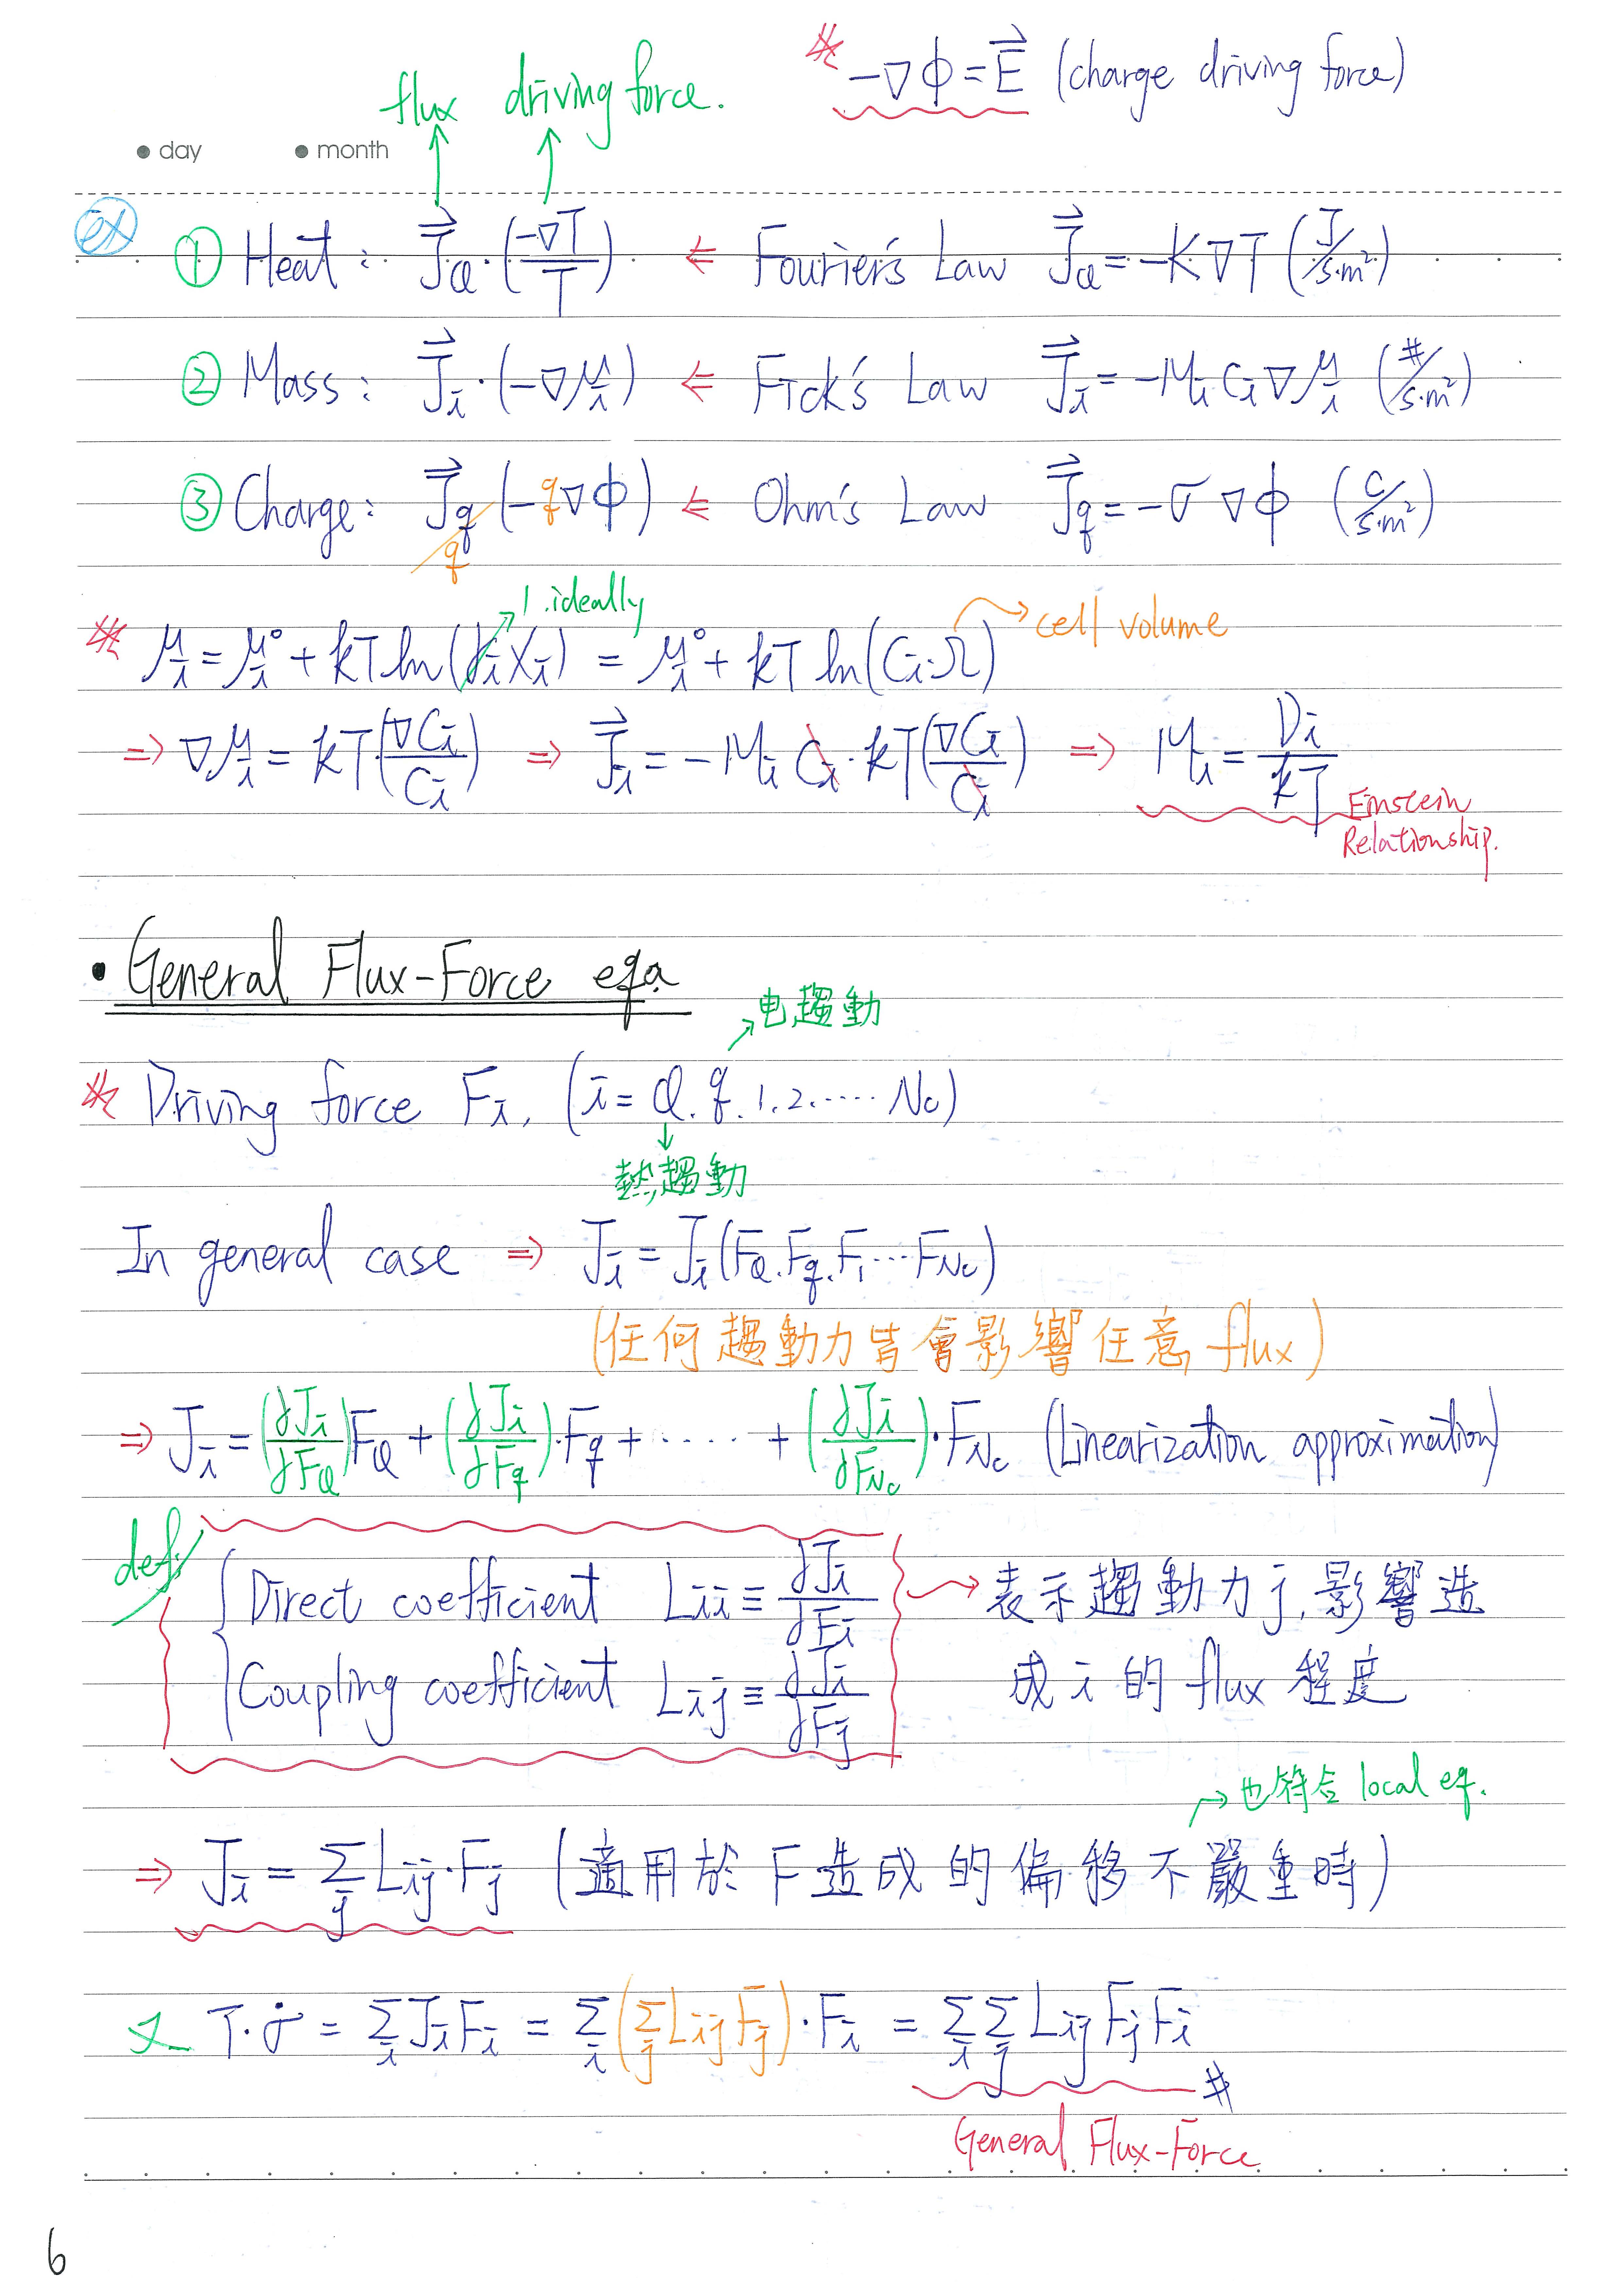 ※ -∇Φ = E⃗ (charge driving force)
flux driving force.
● day ● month
ex
① Heat : J⃗Q · (-∇T/T) ⇐ Fourier's Law J⃗Q = -K∇T (J/s·m²)
② Mass : J⃗i · (-∇μi) ⇐ Fick's Law J⃗i = -Mi Ci ∇μi (#/s·m²)
③ Charge : J⃗q/q (-q∇Φ) ⇐ Ohm's Law J⃗q = -σ∇Φ (C/s·m²)
→ 1 .ideally
→ cell volume
※ μi = μi° + kT ln(γi Xi) = μi° + kT ln(Ci·Ω)
⇒ ∇μi = kT(∇Ci/Ci) ⇒ J⃗i = -Mi Ci · kT(∇Ci/Ci) ⇒ Mi = Di/kT
Einstein
Relationship.
• General Flux-Force eqn
→ 电趨動
※ Driving force Fi, (i = Q. q. 1. 2. ···· Nc)
↓
熱趨動
In general case ⇒ Ji = Ji(FQ. Fq. F1 ··· FNc)
(任何趨動力皆會影響任意 flux)
⇒ Ji = (∂Ji/∂FQ)FQ + (∂Ji/∂Fq)·Fq + ····· + (∂Ji/∂FNc)·FNc (Linearization approximation)
def:
Direct coefficient Lii ≡ ∂Ji/∂Fi → 表示趨動力 j, 影響造
Coupling coefficient Lij ≡ ∂Ji/∂Fj 成 i 的 flux 程度
→ 也符合 local eq.
⇒ Ji = Σj Lij·Fj (適用於 F 造成的偏移不嚴重時)
又 T·σ̇ = Σi Ji Fi = Σi (Σj Lij Fj)·Fi = Σi Σj Lij Fj Fi #
General Flux-Force
6